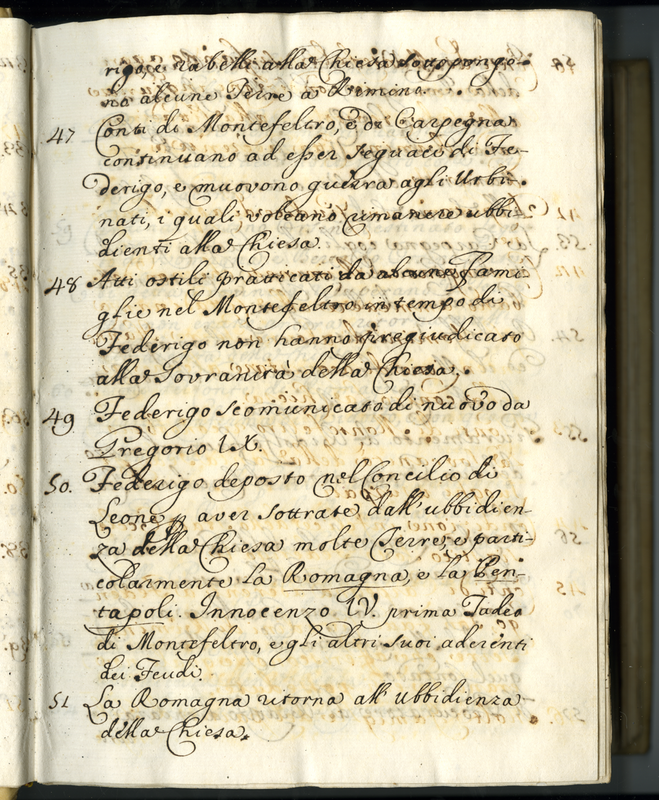 rigo, e rabelli alla Chiesa soggiungo-
no alcune Terre a Rimino.
47 Conti di Montefeltro, e di Carpegna
continuano ad esser seguaci di Fe-
derigo, e muovono guerra agli Urbi-
nati, i quali voleano rimanere ubbi-
dienti alla Chiesa.
48 Atti ostili praticati da alcune Fami
glie nel Montefeltro in tempo di
Federigo non hanno pregiudicato
alla Sovranità della Chiesa.
49 Federigo scomunicato di nuovo da
Gregorio IX.
50. Federigo deposto nel Concilio di
Leone p aver sottrate dall' ubbidien-
za della Chiesa molte Terre, e parti-
colarmente la Romagna, e la Pen-
tapoli. Innocenzo IV. priva Tadeo
di Montefeltro, e gli altri suoi aderenti
dei Feudi.
51 La Romagna ritorna all' Ubbidienza
della Chiesa.